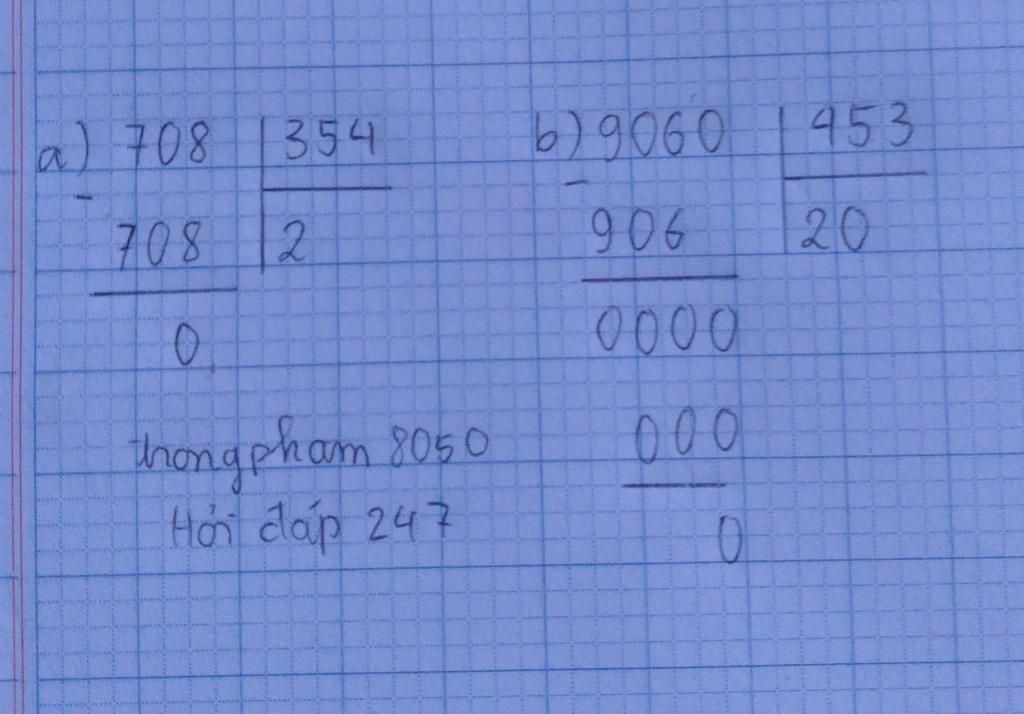 a) 708 | 354
-
708 | 2
0
b) 9060 | 453
-
906 | 20
0000
000
0
trongpham 8050
Hỏi đáp 247